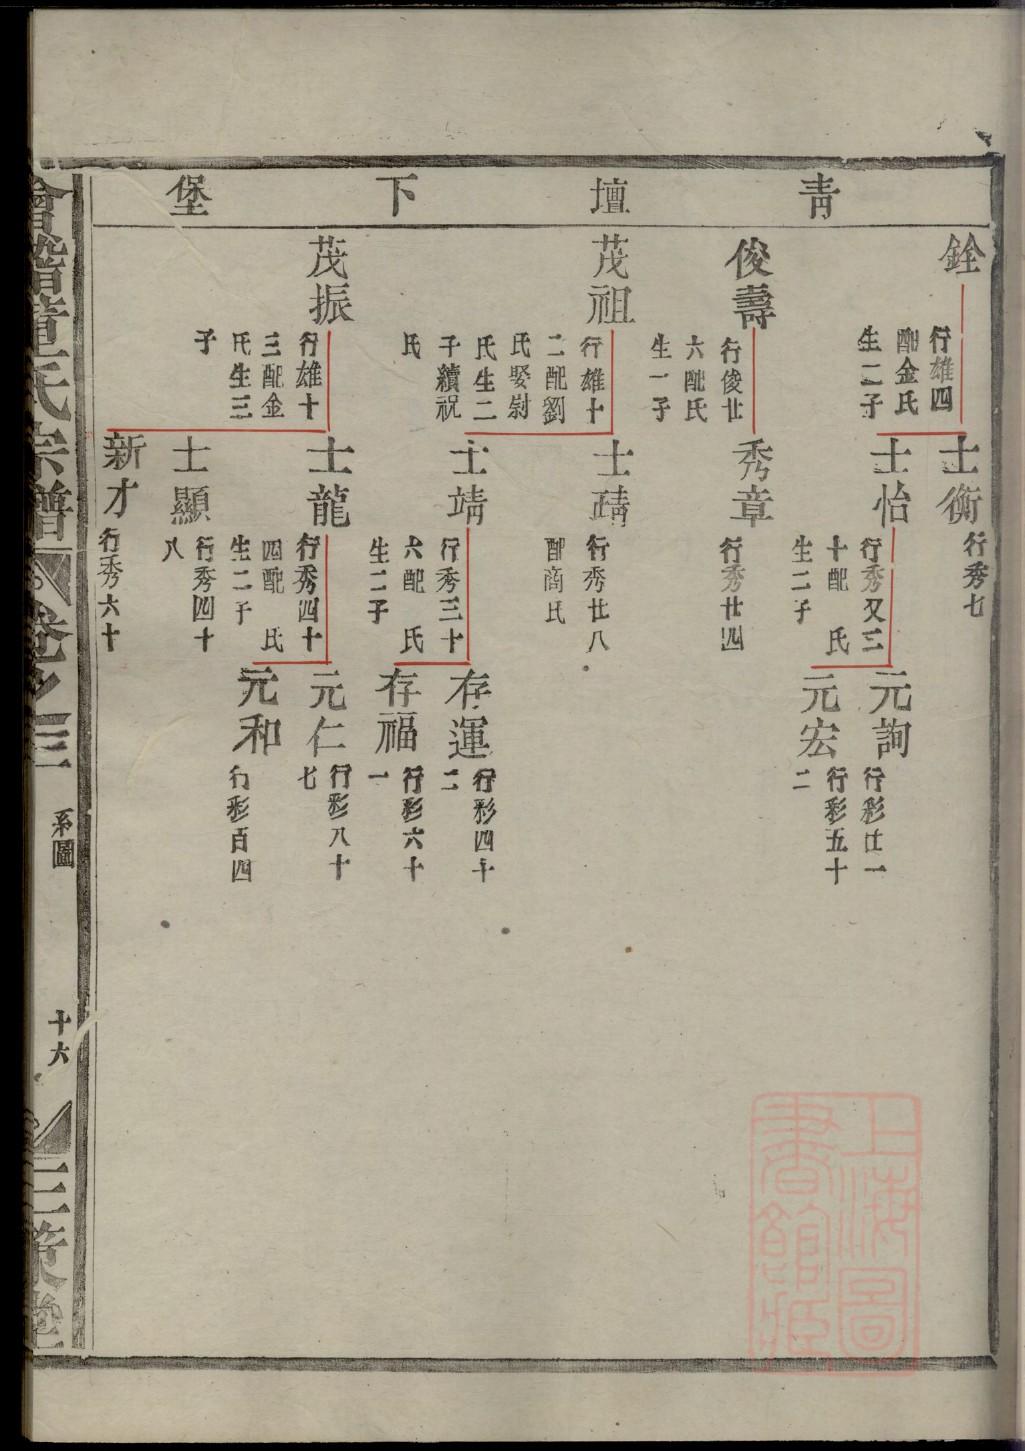 青壇下堡
銓
行雄四
配金氏
生二子
俊壽
行俊廿
六配氏
生一子
茂祖
行雄十
二配劉
氏娶尉
氏生二
子續祝
氏
茂振
行雄十
三配金
氏生三
子
士衡
行秀七
士怡
行秀又三
十配 氏
生二子
秀章
行秀廿四
士
行秀廿八
配商氏
士靖
行秀三十
六配 氏
生二子
士龍
行秀四十
四配 氏
生二子
士顯
行秀四十
八
新才
行秀六十
元詢
行彩廿一
元宏
行彩五十
二
存運
行彩四十
二
存福
行彩六十
一
元仁
行彩八十
七
元和
行彩百四
會稽董氏宗譜
卷之三
系圖
十六
三策堂
上海圖
書館藏